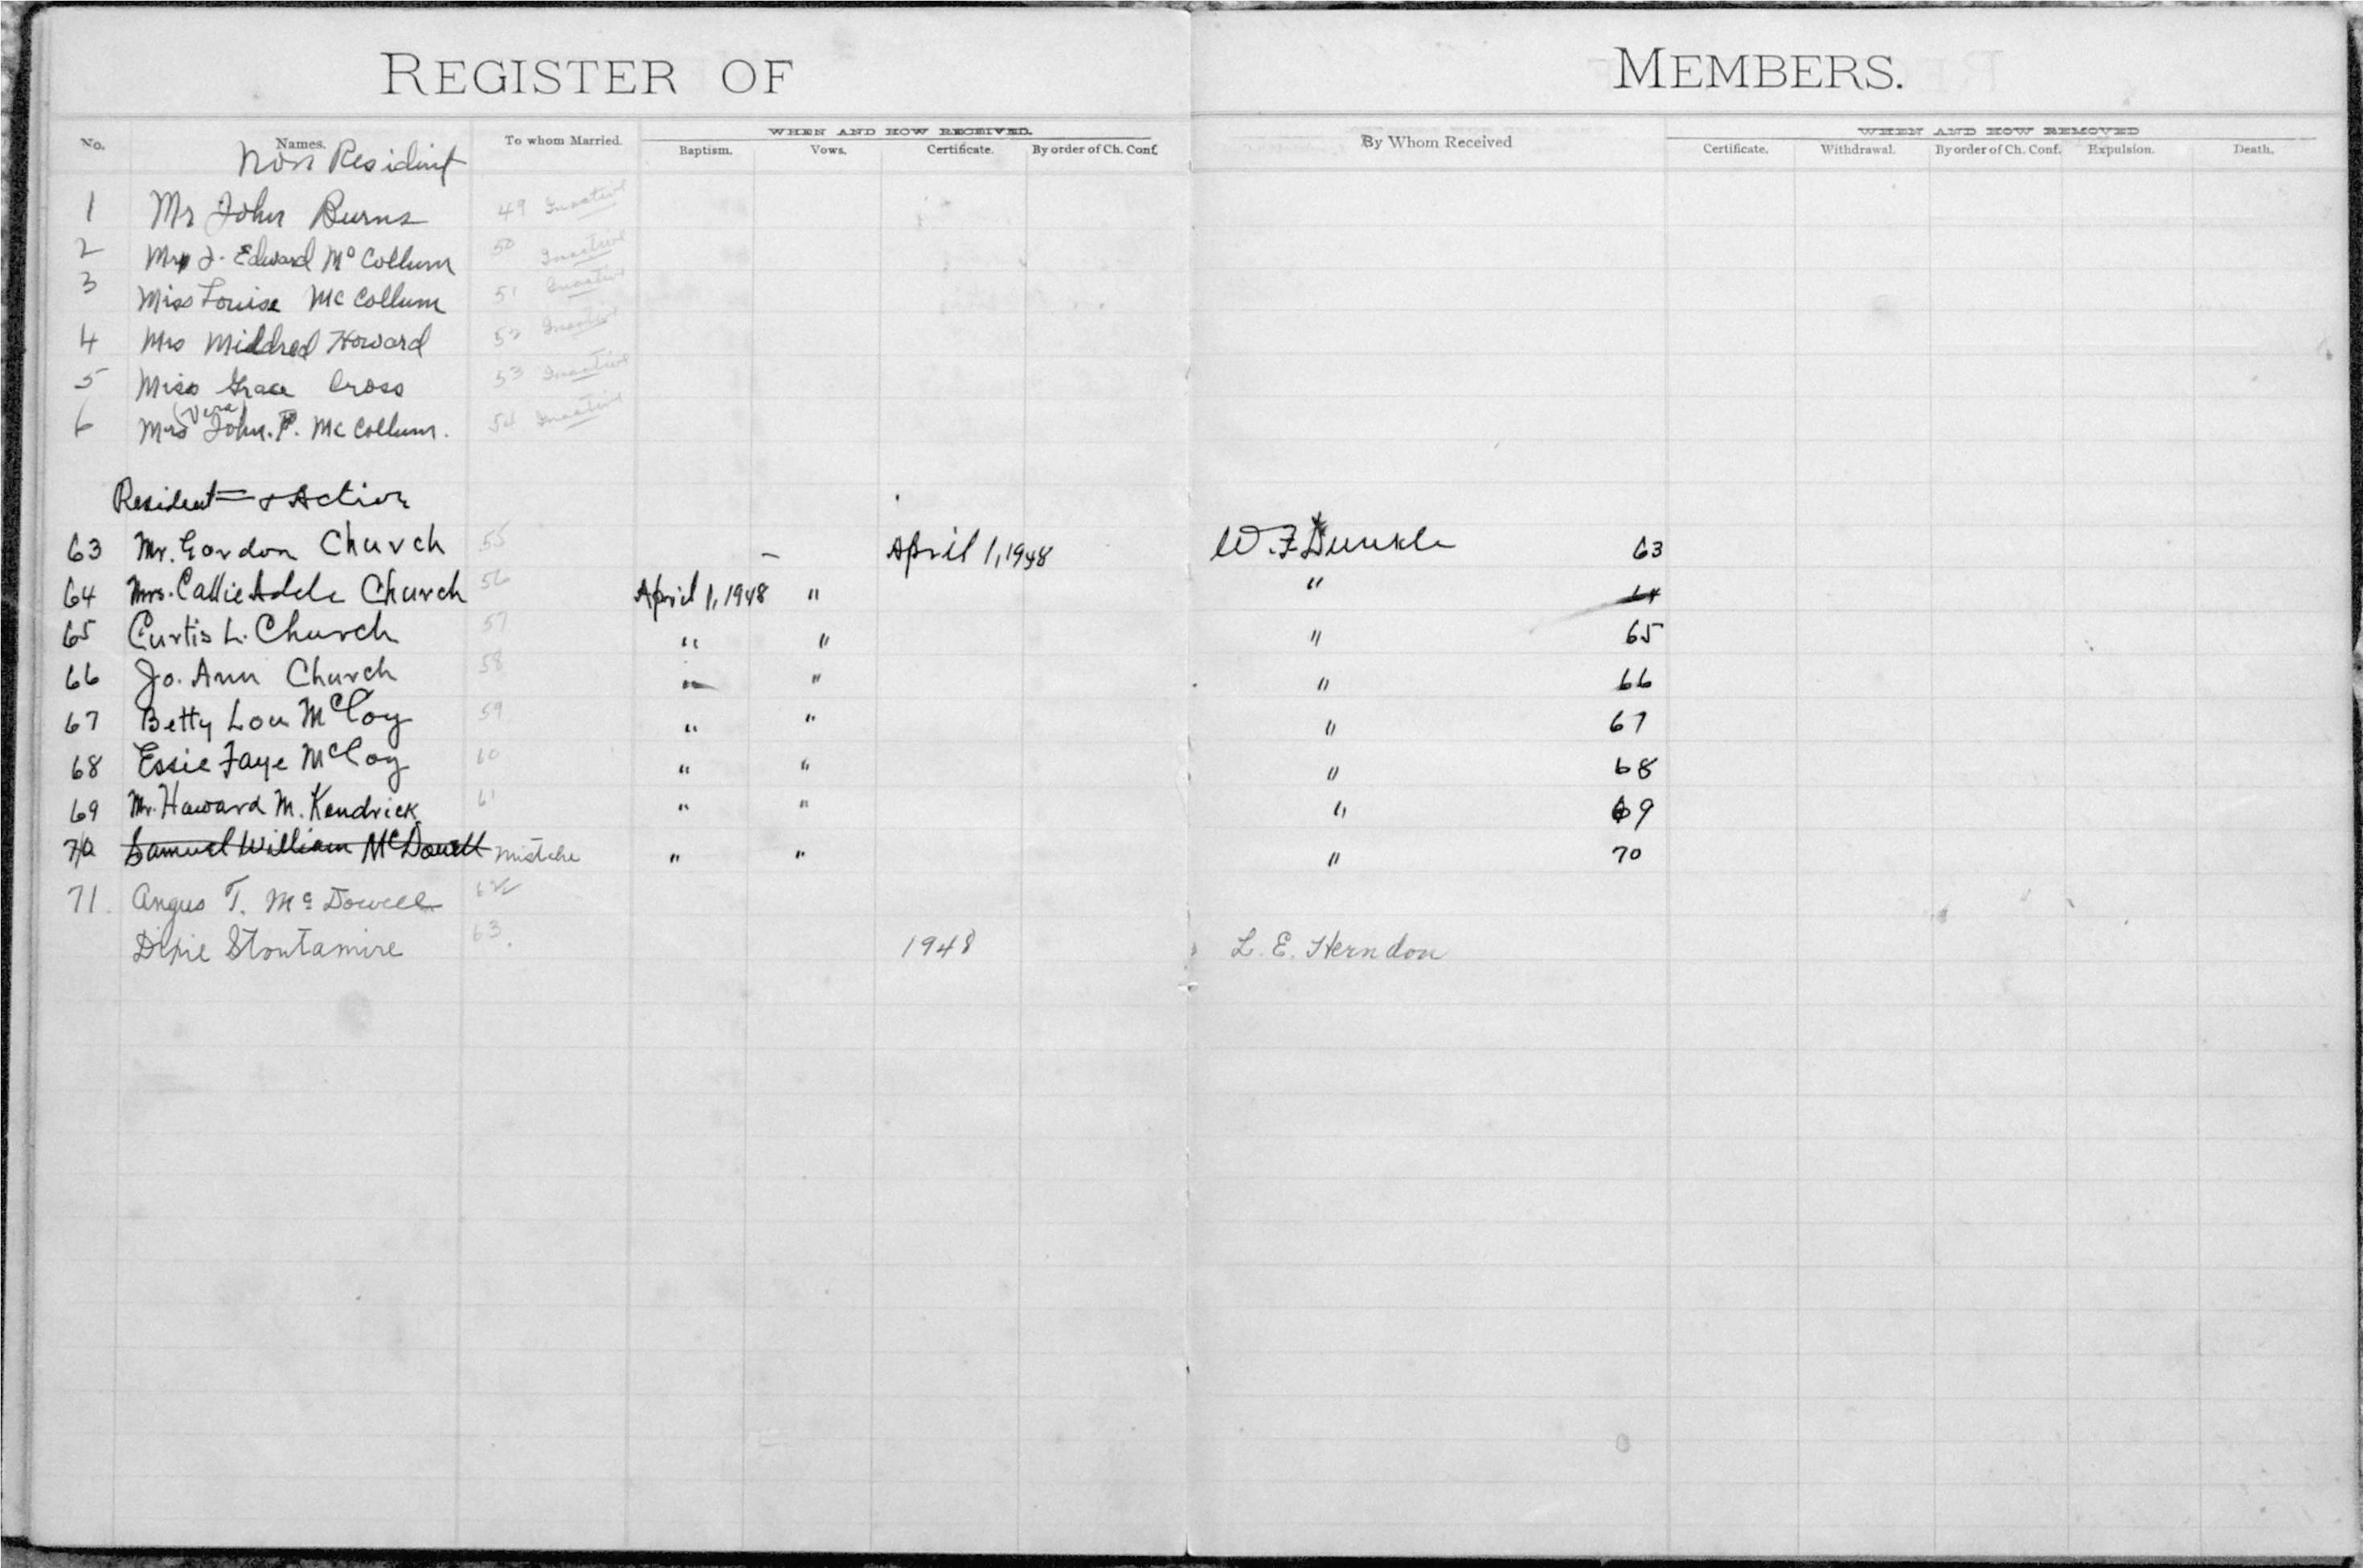 REGISTER OF MEMBERS.
No. Names. To whom Married. WHEN AND HOW RECEIVED. By Whom Received WHEN AND HOW REMOVED
Baptism. Vows. Certificate. By order of Ch. Conf. Certificate. Withdrawal. By order of Ch. Conf. Expulsion. Death.
Non Resident
1 Mr John Burns 49 Inactive
2 Mr J. Edward McCollum 50 Inactive
3 Miss Louise McCollum 51 Inactive
4 Mrs Mildred Howard 52 Inactive
5 Miss Grace Cross 53 Inactive
(Vera)
6 Mrs John. P. McCollum. 54 Inactive
Resident & Active
63 Mr. Gordon Church 55 – April 1, 1948 W. F. Dunkle 63
64 Mrs. Callie Adele Church 56 April 1, 1948 " " 64
65 Curtis L. Church 57 " " " 65
66 Jo. Ann Church 58 " " " 66
67 Betty Lou McCoy 59 " " " 67
68 Essie Faye McCoy 60 " " " 68
69 Mr. Howard M. Kendrick 61 " " " 69
70 Samuel William McDowell mistake " " " 70
71. Angus T. McDowell 62
Dixie Stoutamire 63. 1948 L. E. Herndon